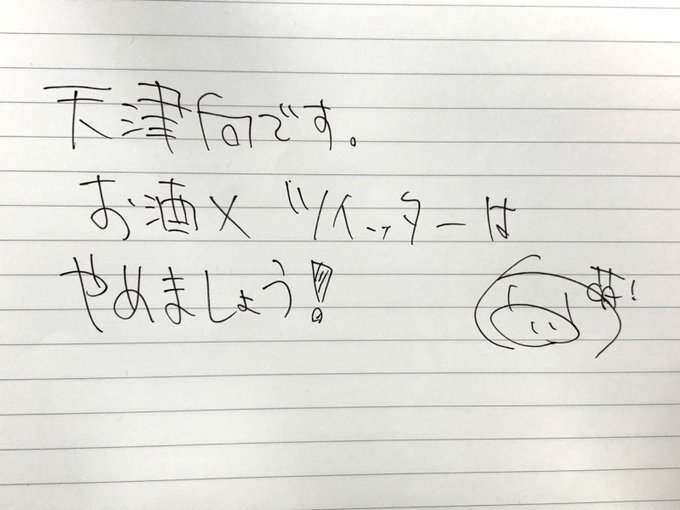 天津向です。
お酒×ツイッターは
やめましょう!